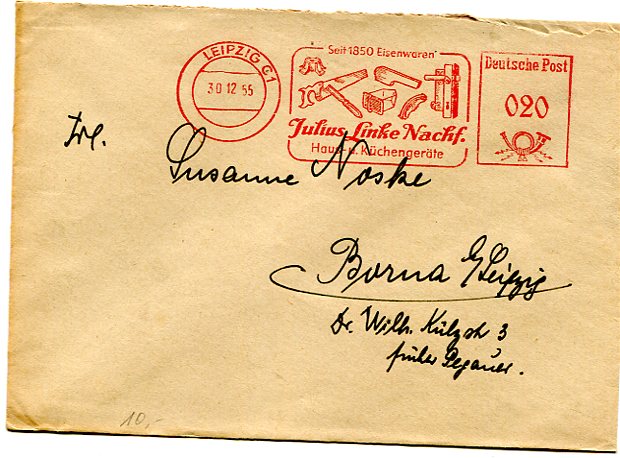 LEIPZIG C1
30.12.55
Seit 1850 Eisenwaren
Julius Linke Nachf.
Haus- u. Küchengeräte
Deutsche Post
020
Frl.
Susanne Noske
Borna b/Leipzig
Dr. Wilh. Külzstr 3
früher Pegauer.
10,-